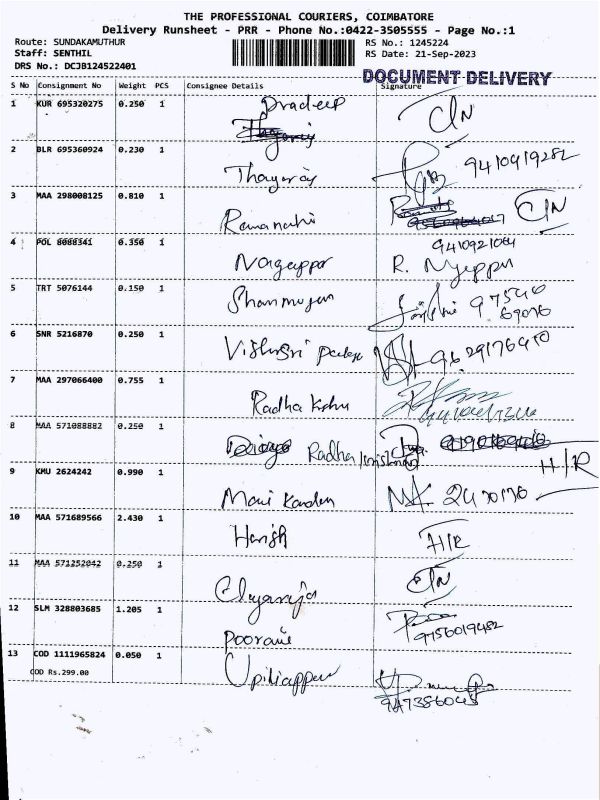 THE PROFESSIONAL COURIERS, COIMBATORE
Delivery Runsheet - PRR - Phone No.:0422-3505555 - Page No.:1
Route: SUNDAKAMUTHUR RS No.: 1245224
Staff: SENTHIL RS Date: 21-Sep-2023
DRS No.: DCJB124522401
DOCUMENT DELIVERY
S No Consignment No Weight PCS Consignee Details Signature
1 KUR 695320275 0.250 1 Pradeep
2 BLR 695360924 0.230 1 Thayaraj 9410419282
3 MAA 298008125 0.810 1
9410921064
4 POL 8088341 0.350 1 Nagappa R.
5 TRT 5076144 0.150 1 Shanmugan 97540
69076
6 SNR 5216870 0.250 1 Vishnsri 9629176410
7 MAA 297066400 0.755 1 Radha
8 MAA 571088882 0.250 1 Radha H/R
9 KMU 2624242 0.990 1 Mani Kandan
10 MAA 571689566 2.430 1 Harish H/R
11 MAA 571252042 0.250 1
12 SLM 328803685 1.205 1 Poorani 9756019482
13 COD 1111965824 0.050 1 Upiliappan
COD Rs.299.00